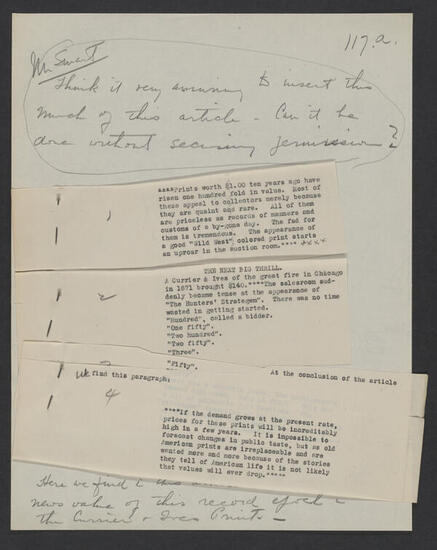 117.a.
Mr Swart
Think it very amusing to insert this
much of this article - Can it be
done without securing permission?
****Prints worth $1.00 ten years ago have
risen one hundred fold in value. Most of
these appeal to collectors merely because
they are quaint and rare. All of them
are priceless as records of manners and
customs of a by-gone day. The fad for
them is tremendous. The appearance of
a good "Wild West" colored print starts
an uproar in the auction room.**** ****
2
THE NEXT BIG THRILL.
A Currier & Ives of the great fire in Chicago
in 1871 brought $140.****The salesroom sud-
denly became tense at the appearance of
"The Hunters' Strategem". There was no time
wasted in getting started.
"Hundred", called a bidder.
"One fifty".
"Two hundred".
"Two fifty".
"Three".
"Fifty".
At the conclusion of the article
we find this paragraph:
4
****If the demand grows at the present rate,
prices for these prints will be incredibly
high in a few years. It is impossible to
forecast changes in public taste, but as old
American prints are irreplaceable and are
wanted more and more because of the stories
they tell of American life it is not likely
that values will ever drop.*****
Here we find in this
news value of this record
the Currier & Ives Prints -